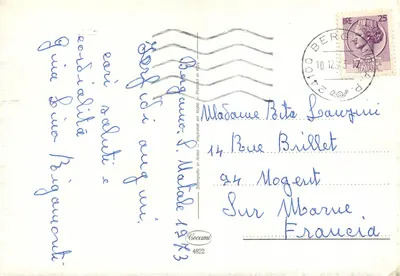 Bergamo, S. Natale 1973
Infiniti auguri
cari saluti e
cordialità
Gina Lino Bergamonti
LIRE 25
24100 BERGAMO
10.12.73
Madame Bita Lanzini
14 Rue Brillet
94 Nogent
Sur Marne
Francia
Cecami
4822